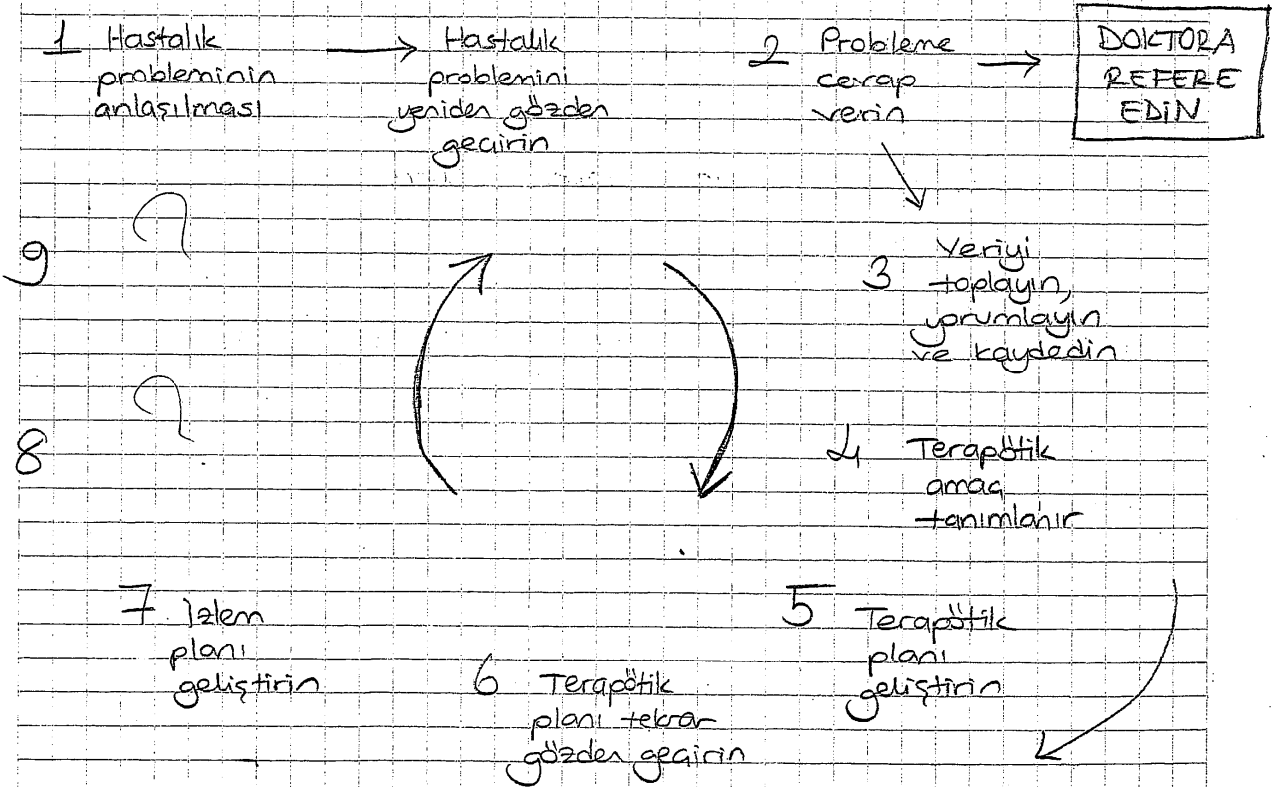 1 Hastalık
probleminin
anlaşılması
Hastalık
problemini
yeniden gözden
geçirin
2 Probleme
cevap
verin
DOKTORA
REFERE
EDİN
3 Veriyi
toplayın,
yorumlayın
ve kaydedin
4 Terapötik
amaç
tanımlanır
5 Terapötik
planı
geliştirin
6 Terapötik
planı tekrar
gözden geçirin
7 İzlem
planı
geliştirin
8 ?
9 ?